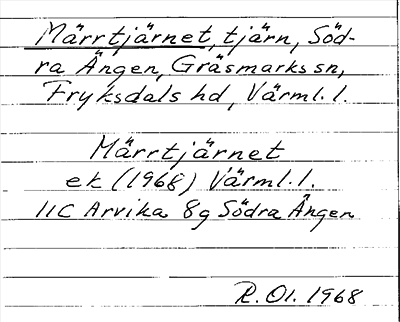 Märrtjärnet, tjärn, Söd-
ra Ängen, Gräsmarks sn,
Fryksdals hd, Värml. l.
Märrtjärnet
ek (1968) Värml. l.
11C Arvika 8g Södra Ängen
R. Ol. 1968